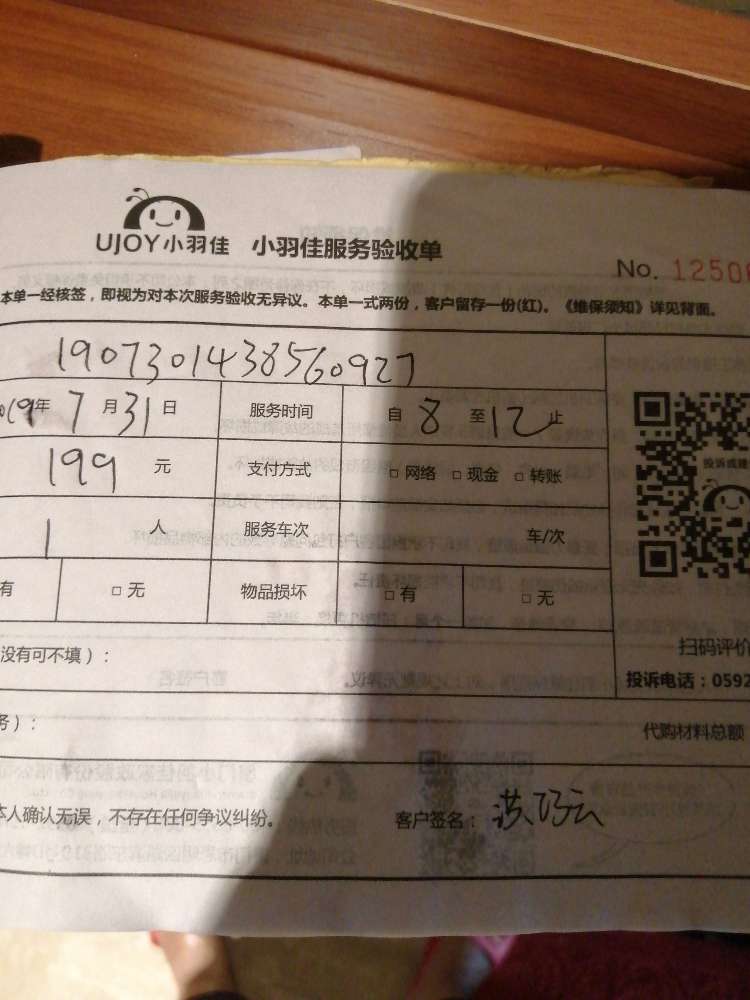 UJOY小羽佳 小羽佳服务验收单
No. 12500
本单一经核签，即视为对本次服务验收无异议。本单一式两份，客户留存一份(红)。《维保须知》详见背面。
1907301438560927
019年 7 月 31 日 服务时间 自 8 至 12 止
199 元 支付方式 □ 网络 □ 现金 □ 转账
投诉或建
1 人 服务车次 车/次
有 □ 无 物品损坏 □ 有 □ 无
没有可不填）：
扫码评价
投诉电话：0592
务）：
代购材料总额
本人确认无误，不存在任何争议纠纷。 客户签名：洪巧云